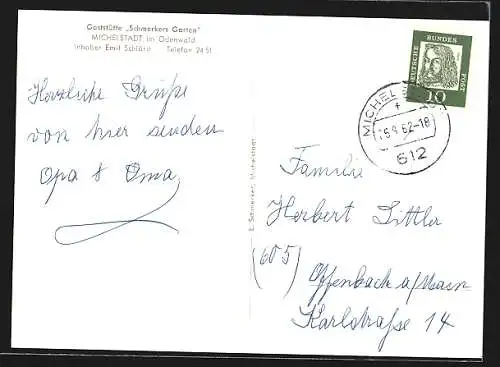 Gaststätte „Schmerkers Garten"
MICHELSTADT im Odenwald
Inhaber Emil Telefon 2451
Herzliche Grüße
von hier senden
Opa & Oma
E. Schmerker, Michelstadt
DEUTSCHE BUNDESPOST
10
MICHEL
62-18
612
Familie
Herbert Dittler
(605)
Offenbach a/Main
Karlstraße 14